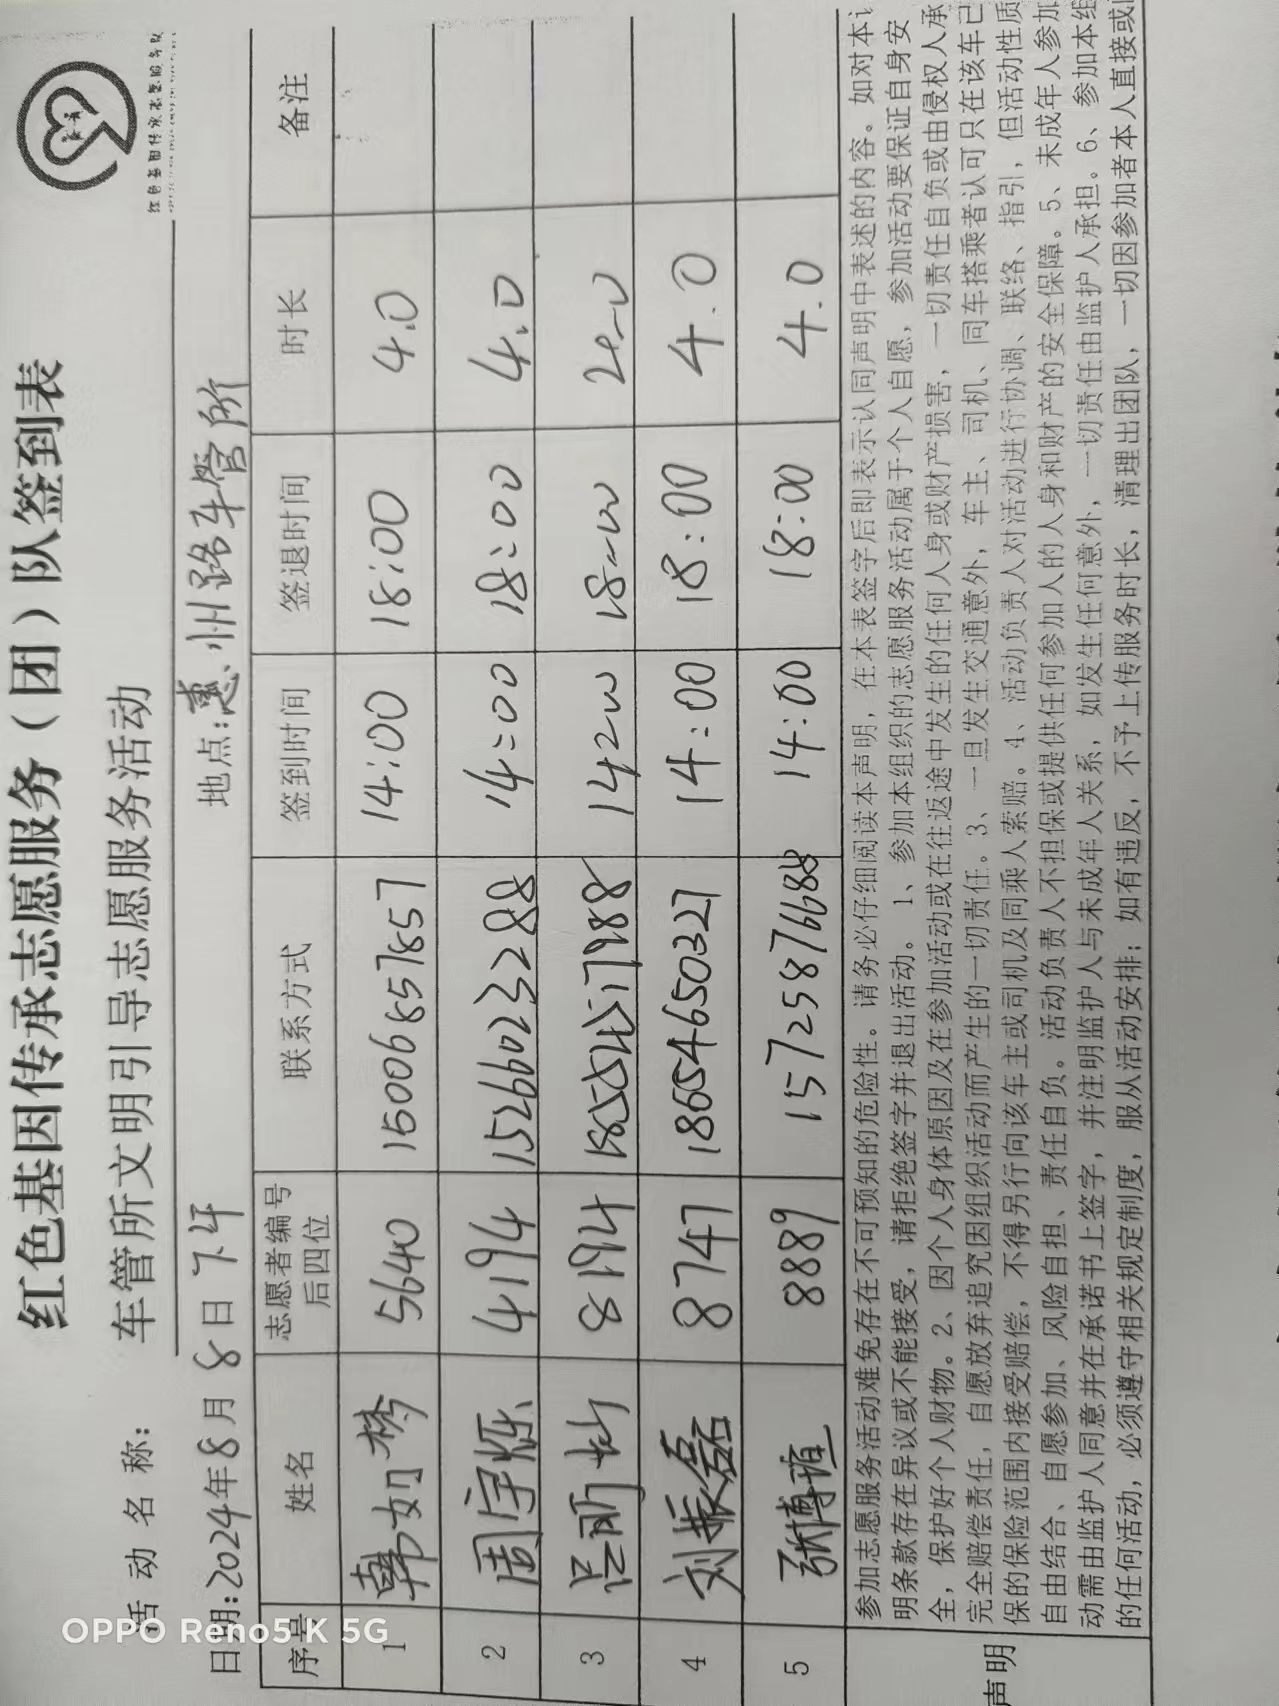 红色基因传承志愿服务（团）队签到表
红色基因传承志愿服务队
活动名称：车管所文明引导志愿服务活动
日期:2024年8月8日下午 地点:惠州路车管所
序号 姓名 志愿者编号后四位 联系方式 签到时间 签退时间 时长 备注
1 韩如梦 5640 15006857857 14:00 18:00 4.0
2 周宇烁 4194 15266023288 14:00 18:00 4.0
3 8194 18:00
4 刘振磊 8747 18654650327 14:00 18:00 4.0
5 张博 8889 14:00 18:00 4.0
声明
参加志愿服务活动难免存在不可预知的危险性。请务必仔细阅读本声明，在本表签字后即表示认同声明中表述的内容。如对本
明条款存在异议或不能接受，请拒绝签字并退出活动。1、参加本组织的志愿服务活动属于个人自愿，参加活动要保证自身安
全，保护好个人财物。2、因个人身体原因及在参加活动或在往返途中发生的任何人身或财产损害，一切责任自负或由侵权人承
完全赔偿责任，自愿放弃追究因组织活动而产生的一切责任。3、一旦发生交通意外，车主、司机、同车搭乘者认可只在该车已
保的保险范围内接受赔偿，不得另行向该车主或司机及同乘人索赔。4、活动负责人对活动进行协调、联络、指引，但活动性质
自由结合、自愿参加、风险自担、责任自负。活动负责人不担保或提供任何参加人的人身和财产的安全保障。5、未成年人参加
动需由监护人同意并在承诺书上签字，并注明监护人与未成年人关系，如发生任何意外，一切责任由监护人承担。6、参加本组
的任何活动，必须遵守相关规定制度，服从活动安排；如有违反，不予上传服务时长，清理出团队，一切因参加者本人直接或
OPPO Reno5 K 5G